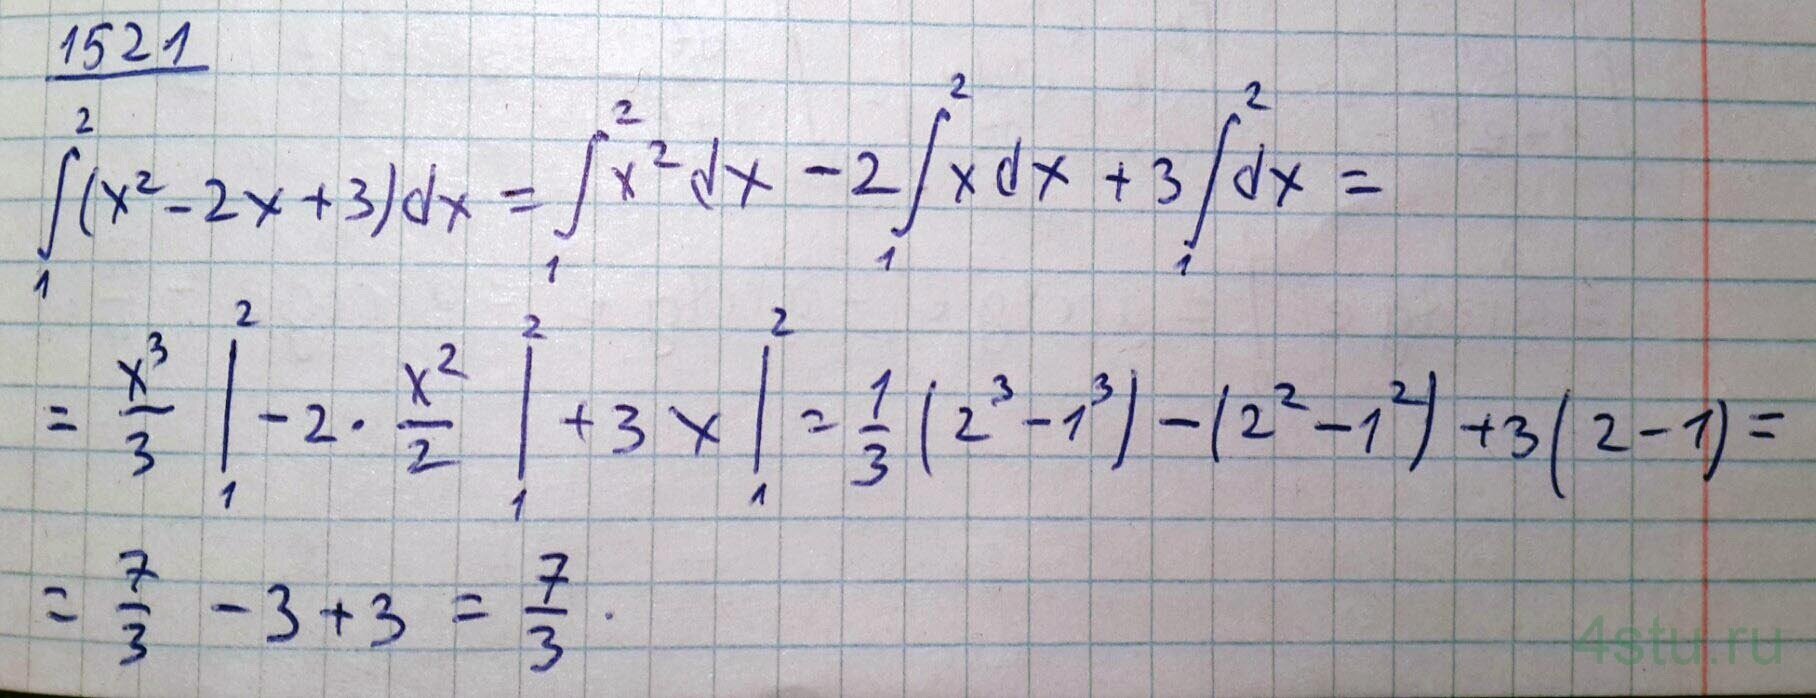 1521
∫₁² (x² - 2x + 3) dx = ∫₁² x² dx - 2 ∫₁² x dx + 3 ∫₁² dx =
= x³/3 |₁² - 2 · x²/2 |₁² + 3x |₁² = 1/3 (2³ - 1³) - (2² - 1²) + 3 (2 - 1) =
= 7/3 - 3 + 3 = 7/3 .
4stu.ru